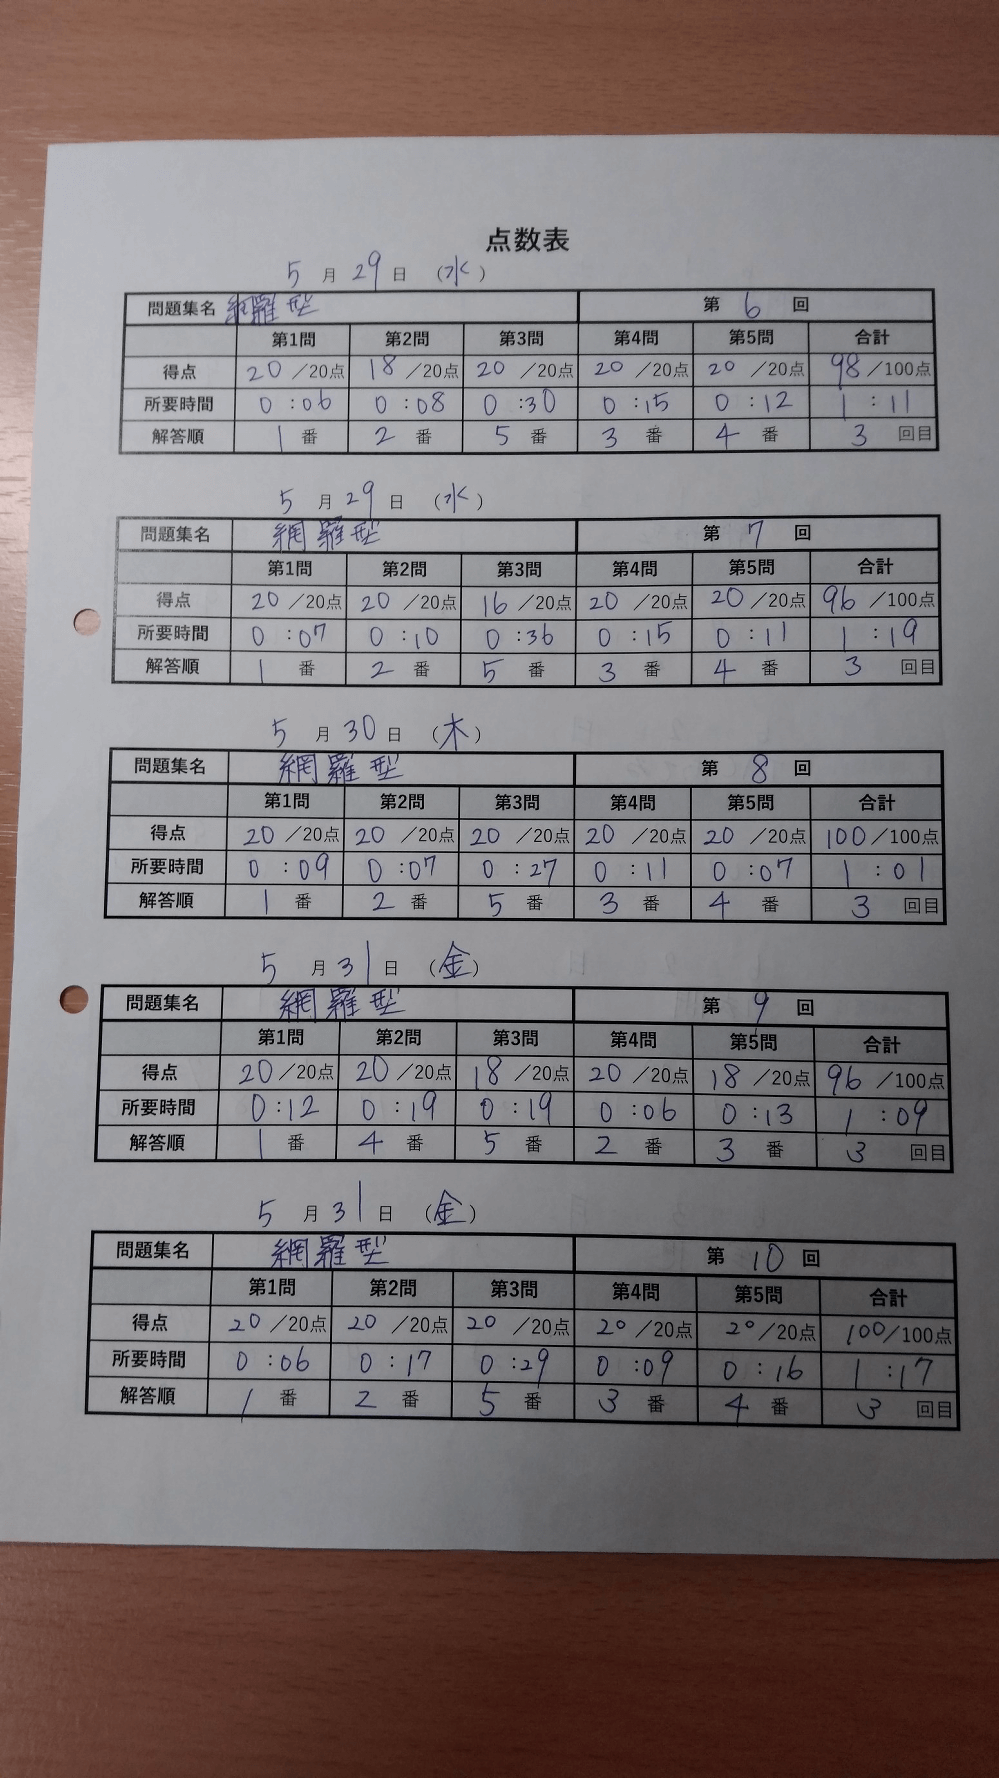 点数表
5月29日（水）
問題集名 網羅型 第6回
第1問 第2問 第3問 第4問 第5問 合計
得点 20/20点 18/20点 20/20点 20/20点 20/20点 98/100点
所要時間 0:06 0:08 0:30 0:15 0:12 1:11
解答順 1番 2番 5番 3番 4番 3回目
5月29日（水）
問題集名 網羅型 第7回
第1問 第2問 第3問 第4問 第5問 合計
得点 20/20点 20/20点 16/20点 20/20点 20/20点 96/100点
所要時間 0:07 0:10 0:36 0:15 0:11 1:19
解答順 1番 2番 5番 3番 4番 3回目
5月30日（木）
問題集名 網羅型 第8回
第1問 第2問 第3問 第4問 第5問 合計
得点 20/20点 20/20点 20/20点 20/20点 20/20点 100/100点
所要時間 0:09 0:07 0:27 0:11 0:07 1:01
解答順 1番 2番 5番 3番 4番 3回目
5月31日（金）
問題集名 網羅型 第9回
第1問 第2問 第3問 第4問 第5問 合計
得点 20/20点 20/20点 18/20点 20/20点 18/20点 96/100点
所要時間 0:12 0:19 0:19 0:06 0:13 1:09
解答順 1番 4番 5番 2番 3番 3回目
5月31日（金）
問題集名 網羅型 第10回
第1問 第2問 第3問 第4問 第5問 合計
得点 20/20点 20/20点 20/20点 20/20点 20/20点 100/100点
所要時間 0:06 0:17 0:29 0:09 0:16 1:17
解答順 1番 2番 5番 3番 4番 3回目